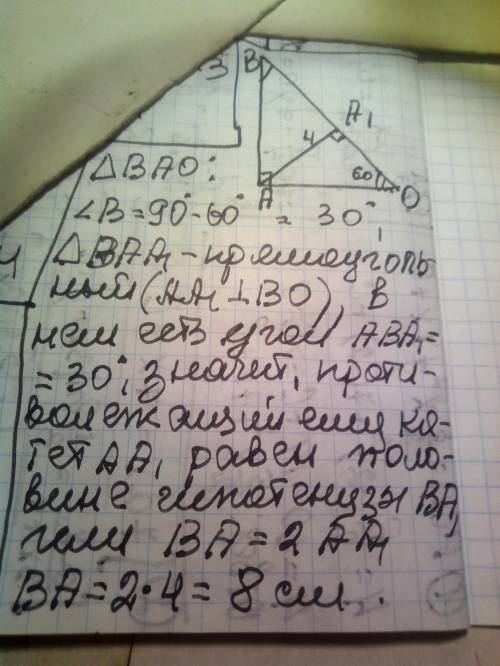 3
B
A₁
4
60°
A
O
△ BAO:
∠B = 90° - 60° = 30°,
△BAA₁ - прямоуголь-
ный (AA₁ ⊥ BO), в
нем есть угол ABA₁ =
= 30°, значит, проти-
волежащий ему ка-
тет AA₁ равен поло-
вине гипотенузы BA,
или BA = 2 AA₁
BA = 2 · 4 = 8 см.